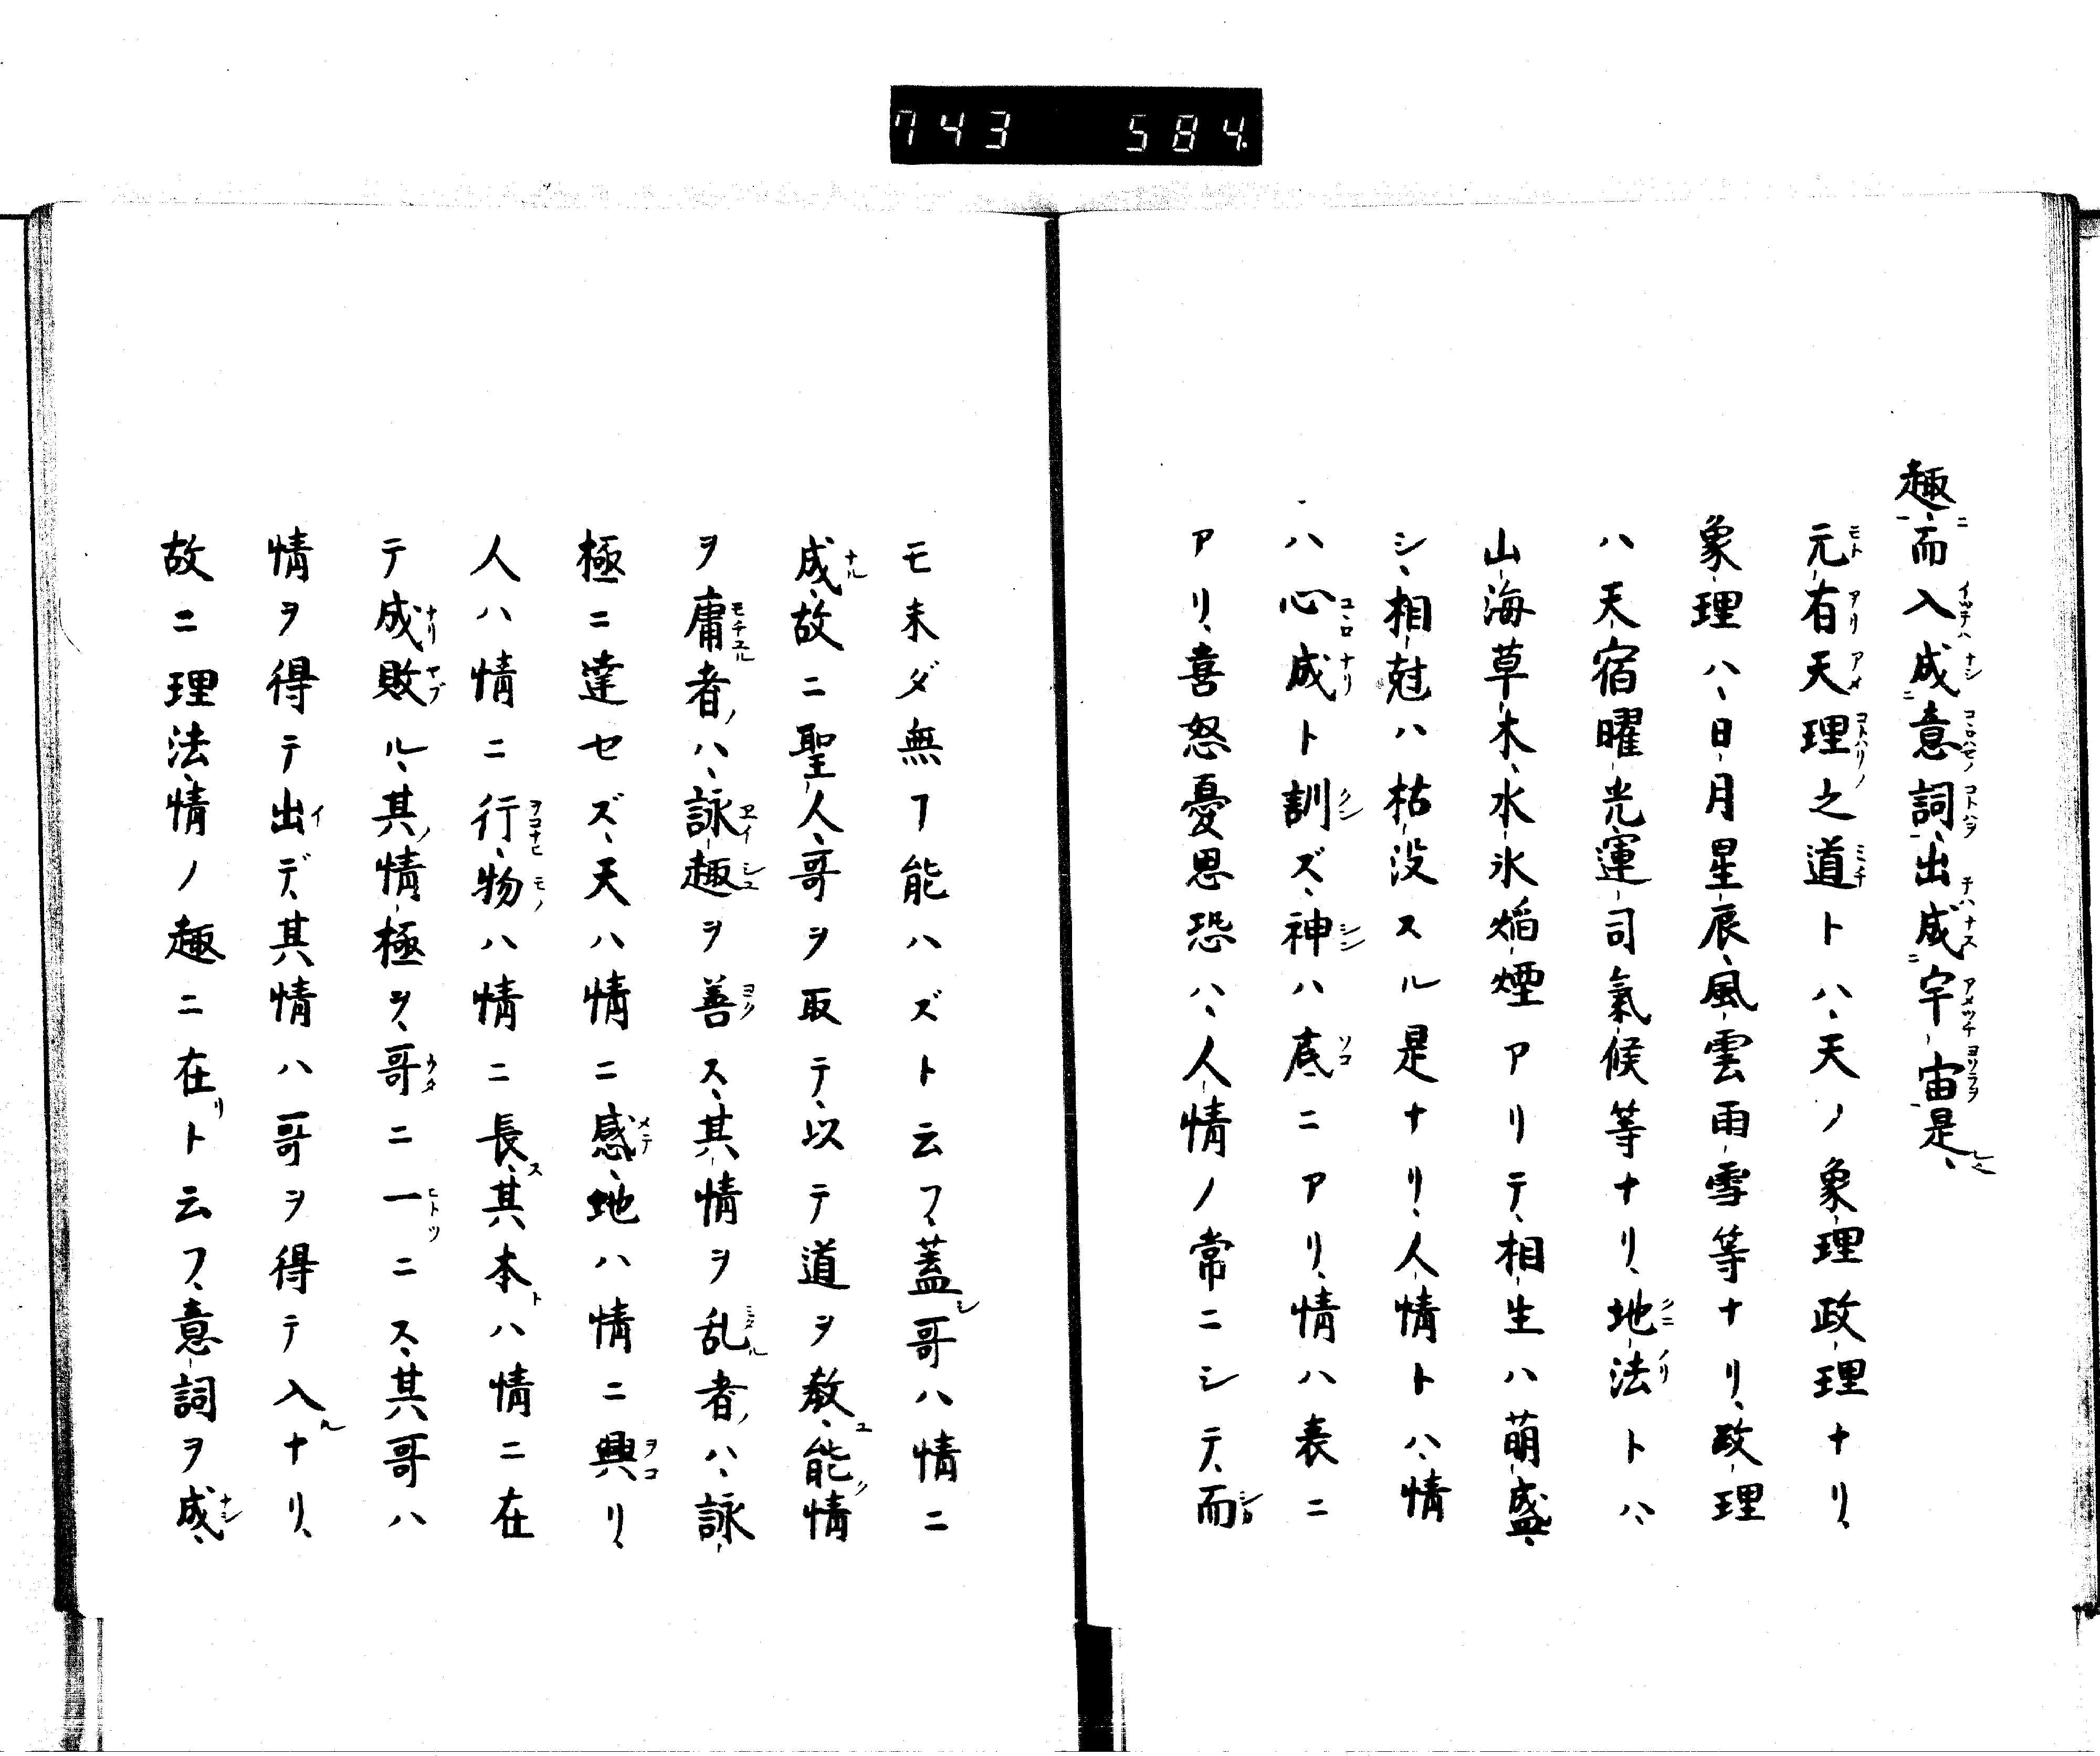 743 584.
趣而入成意詞、出成宇宙是、
元有天理之道トハ、天ノ象理政理ナリ、
象理ハ、日月星辰風雲雨雪等ナリ、政理
ハ天宿曜光運司氣候等ナリ、地法トハ、
山海草木、水氷焔煙アリテ、相生ハ萌盛、
シ、相尅ハ枯没スル是ナリ、人情トハ、情
ハ心成ト訓ズ、神ハ底ニアリ、情ハ表ニ
アリ、喜怒憂思恐ハ、人情ノ常ニシテ、而
モ未ダ無フ能ハズト云フ、蓋哥ハ情ニ
成、故ニ聖人、哥ヲ取テ、以テ道ヲ教、能情
ヲ庸者ハ、詠趣ヲ善ス、其情ヲ乱者ハ、詠
極ニ達セズ、天ハ情ニ感、地ハ情ニ興リ、
人ハ情ニ行、物ハ情ニ長、其本ハ情ニ在
テ成敗ル、其情極ヲ、哥ニ一ニス、其哥ハ
情ヲ得テ出デ、其情ハ哥ヲ得テ入ナリ、
故ニ理法情ノ趣ニ在ト云フ、意詞ヲ成、